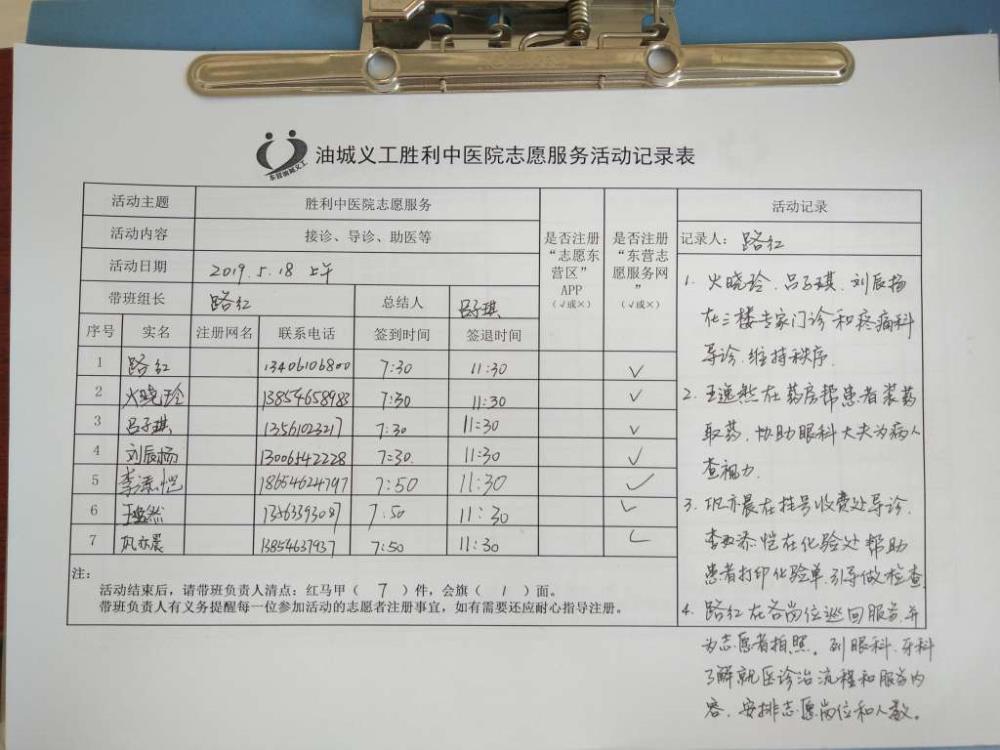 东营油城义工
油城义工胜利中医院志愿服务活动记录表
活动主题 胜利中医院志愿服务
活动内容 接诊、导诊、助医等
活动日期 2019.5.18 上午
带班组长 路红 总结人 吕子琪
序号 实名 注册网名 联系电话 签到时间 签退时间
是否注册“志愿东营区”APP（√或×）
是否注册“东营志愿服务网”（√或×）
1 路红 13406106800 7:30 11:30 √
2 火晓玲 13854658983 7:30 11:30 √
3 吕子琪 13561023217 7:30 11:30 √
4 刘辰扬 13006542228 7:30 11:30 √
5 李添恺 18654624797 7:50 11:30 √
6 王逸然 7:50 11:30 √
7 亦晨 13854637937 7:50 11:30 √
注：
活动结束后，请带班负责人清点：红马甲（ 7 ）件，会旗（ 1 ）面。
带班负责人有义务提醒每一位参加活动的志愿者注册事宜，如有需要还应耐心指导注册。
活动记录
记录人： 路红
1. 火晓玲、吕子琪、刘辰扬
在三楼专家门诊和疼痛科
导诊、维持秩序.
2. 王逸然在药房帮患者装药
取药，协助眼科大夫为病人
查视力.
3. 亦晨在挂号收费处导诊.
李添恺在化验处帮助
患者打印化验单，引导做检查
4. 路红在各岗位巡回服务，并
为志愿者拍照。到眼科、牙科
了解就医诊治流程和服务内
容，安排志愿岗位和人数。